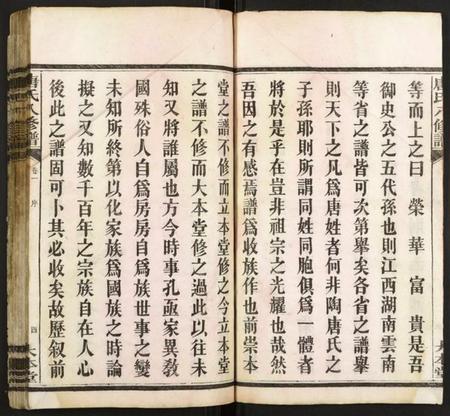 唐氏八修譜
等而上之曰榮華富貴是吾
御史公之五代孫也則江西湖南雲南
等省之譜皆可次第舉矣各省之譜舉
則天下之凡爲唐姓者何非陶唐氏之
子孫耶則所謂同姓同胞俱爲一體者
將於是乎在豈非祖宗之光耀也哉然
吾因之有感焉譜爲收族作也前崇本
大本堂
唐氏八修譜
卷一 序
四
大本堂
堂之譜不修而立本堂修之今立本堂
之譜不修而大本堂修之過此以往未
知又將誰屬也方今時事孔亟家異教
國殊俗人自爲房房自爲族世事之變
未知所終第以化家族爲國族之時論
擬之又知數千百年之宗族自在人心
後此之譜固可卜其必收矣故歷叙前